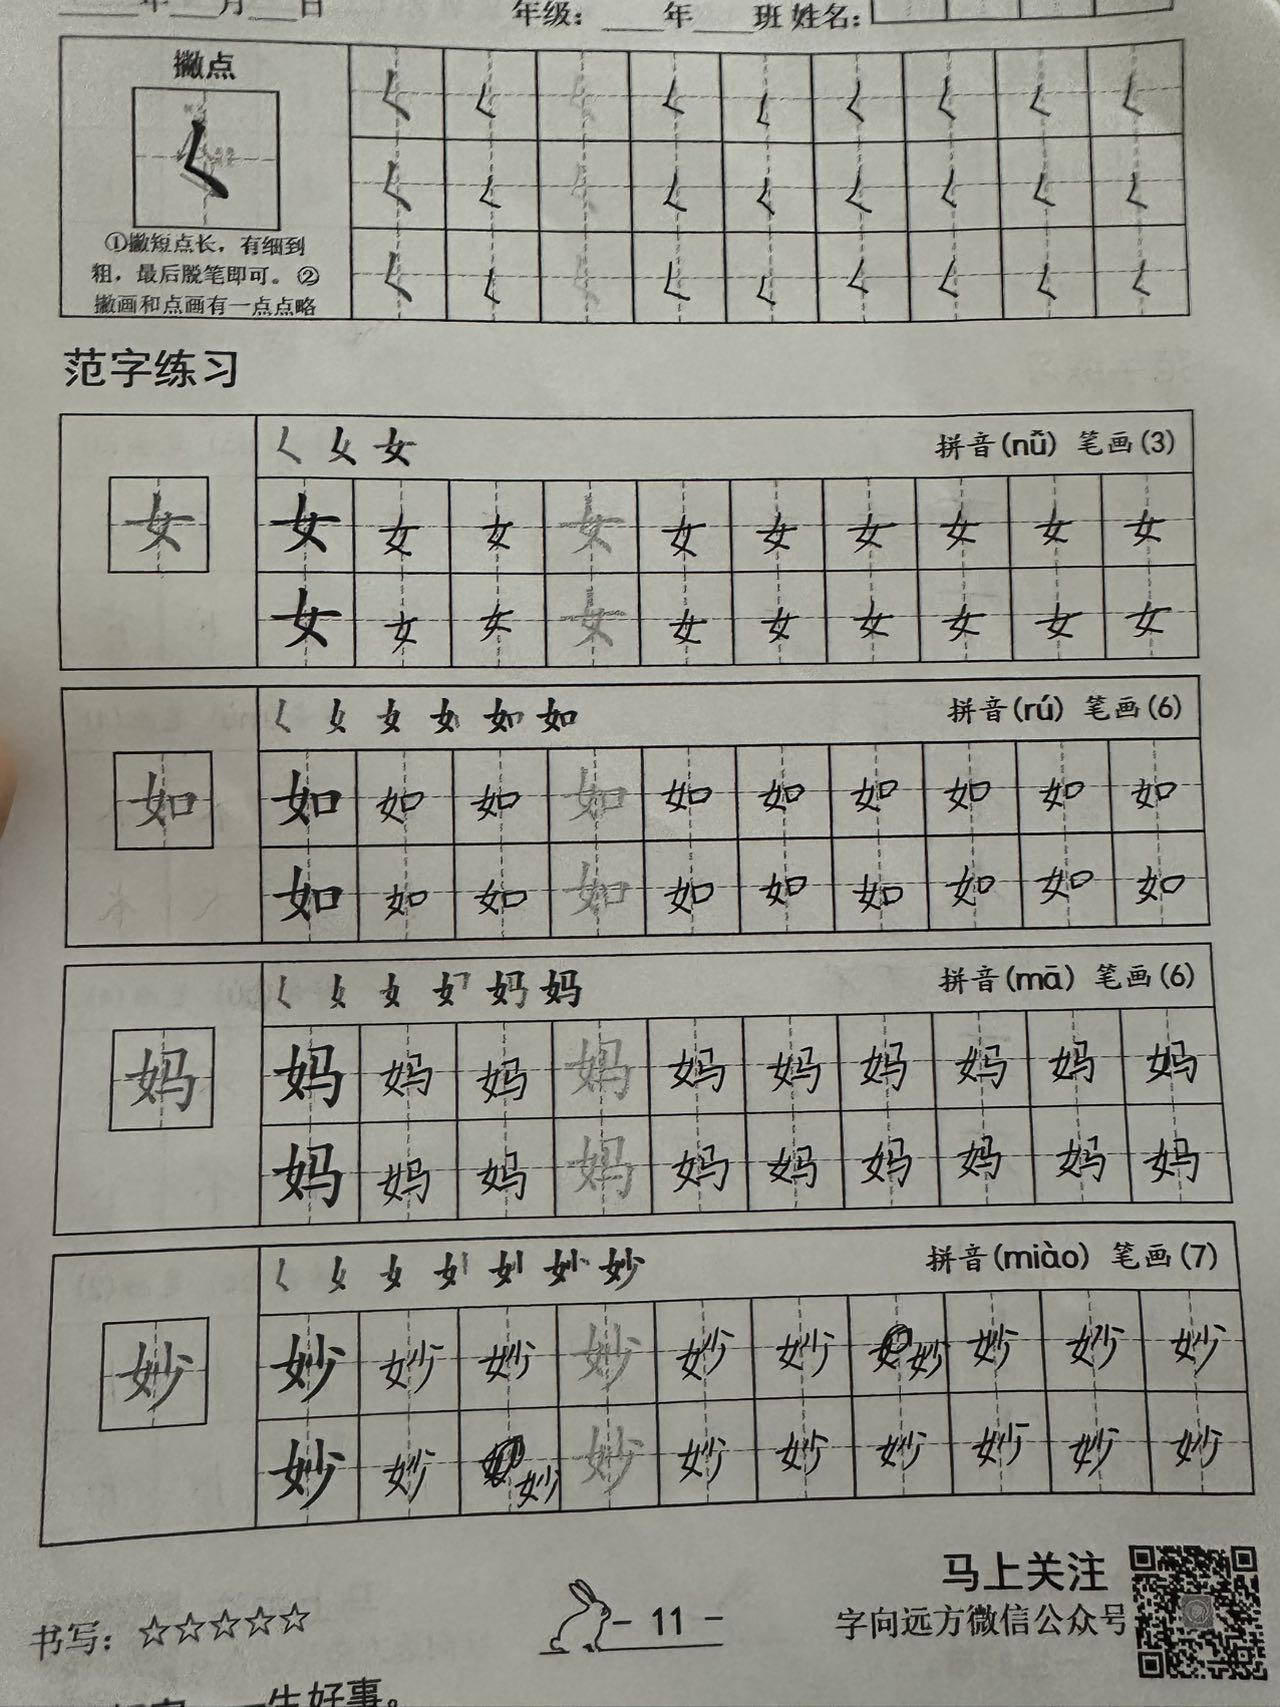 年 月 日 年级: 年 班 姓名:
撇点
①撇短点长，有细到
粗，最后脱笔即可。②
撇画和点画有一点点略
范字练习
女 拼音(nǚ) 笔画(3)
女 女 女 女 女 女 女 女 女 女 女
女 女 女 女 女 女 女 女 女 女
女 女 如 拼音(rú) 笔画(6)
如 如 如 如 如 如 如 如 如 如 如
如 如 如 如 如 如 如 如 如 如
女 女 妈 拼音(mā) 笔画(6)
妈 妈 妈 妈 妈 妈 妈 妈 妈 妈 妈
妈 妈 妈 妈 妈 妈 妈 妈 妈 妈
女 女 妙 拼音(miào) 笔画(7)
妙 妙 妙 妙 妙 妙 妙 妙 妙 妙 妙
妙 妙 妙 妙 妙 妙 妙 妙 妙 妙
马上关注
书写: ☆☆☆☆☆ - 11 - 字向远方微信公众号
一生好事。